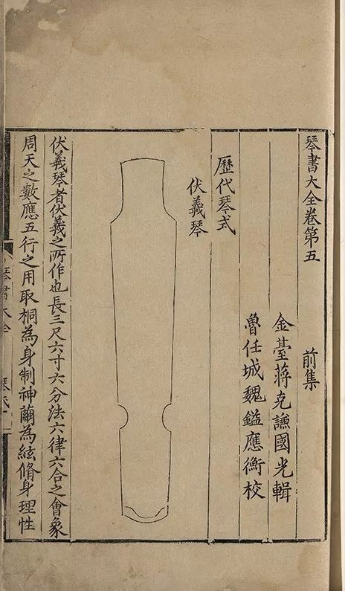 琴書大全卷第五
前集
金臺蔣克謙國光輯
魯任城魏鎰應衡校
歷代琴式
伏羲琴
伏羲琴者伏羲之所作也長三尺六寸六分法六律六合之會象
周天之數應五行之用取桐為身制神繭為絃脩身理性